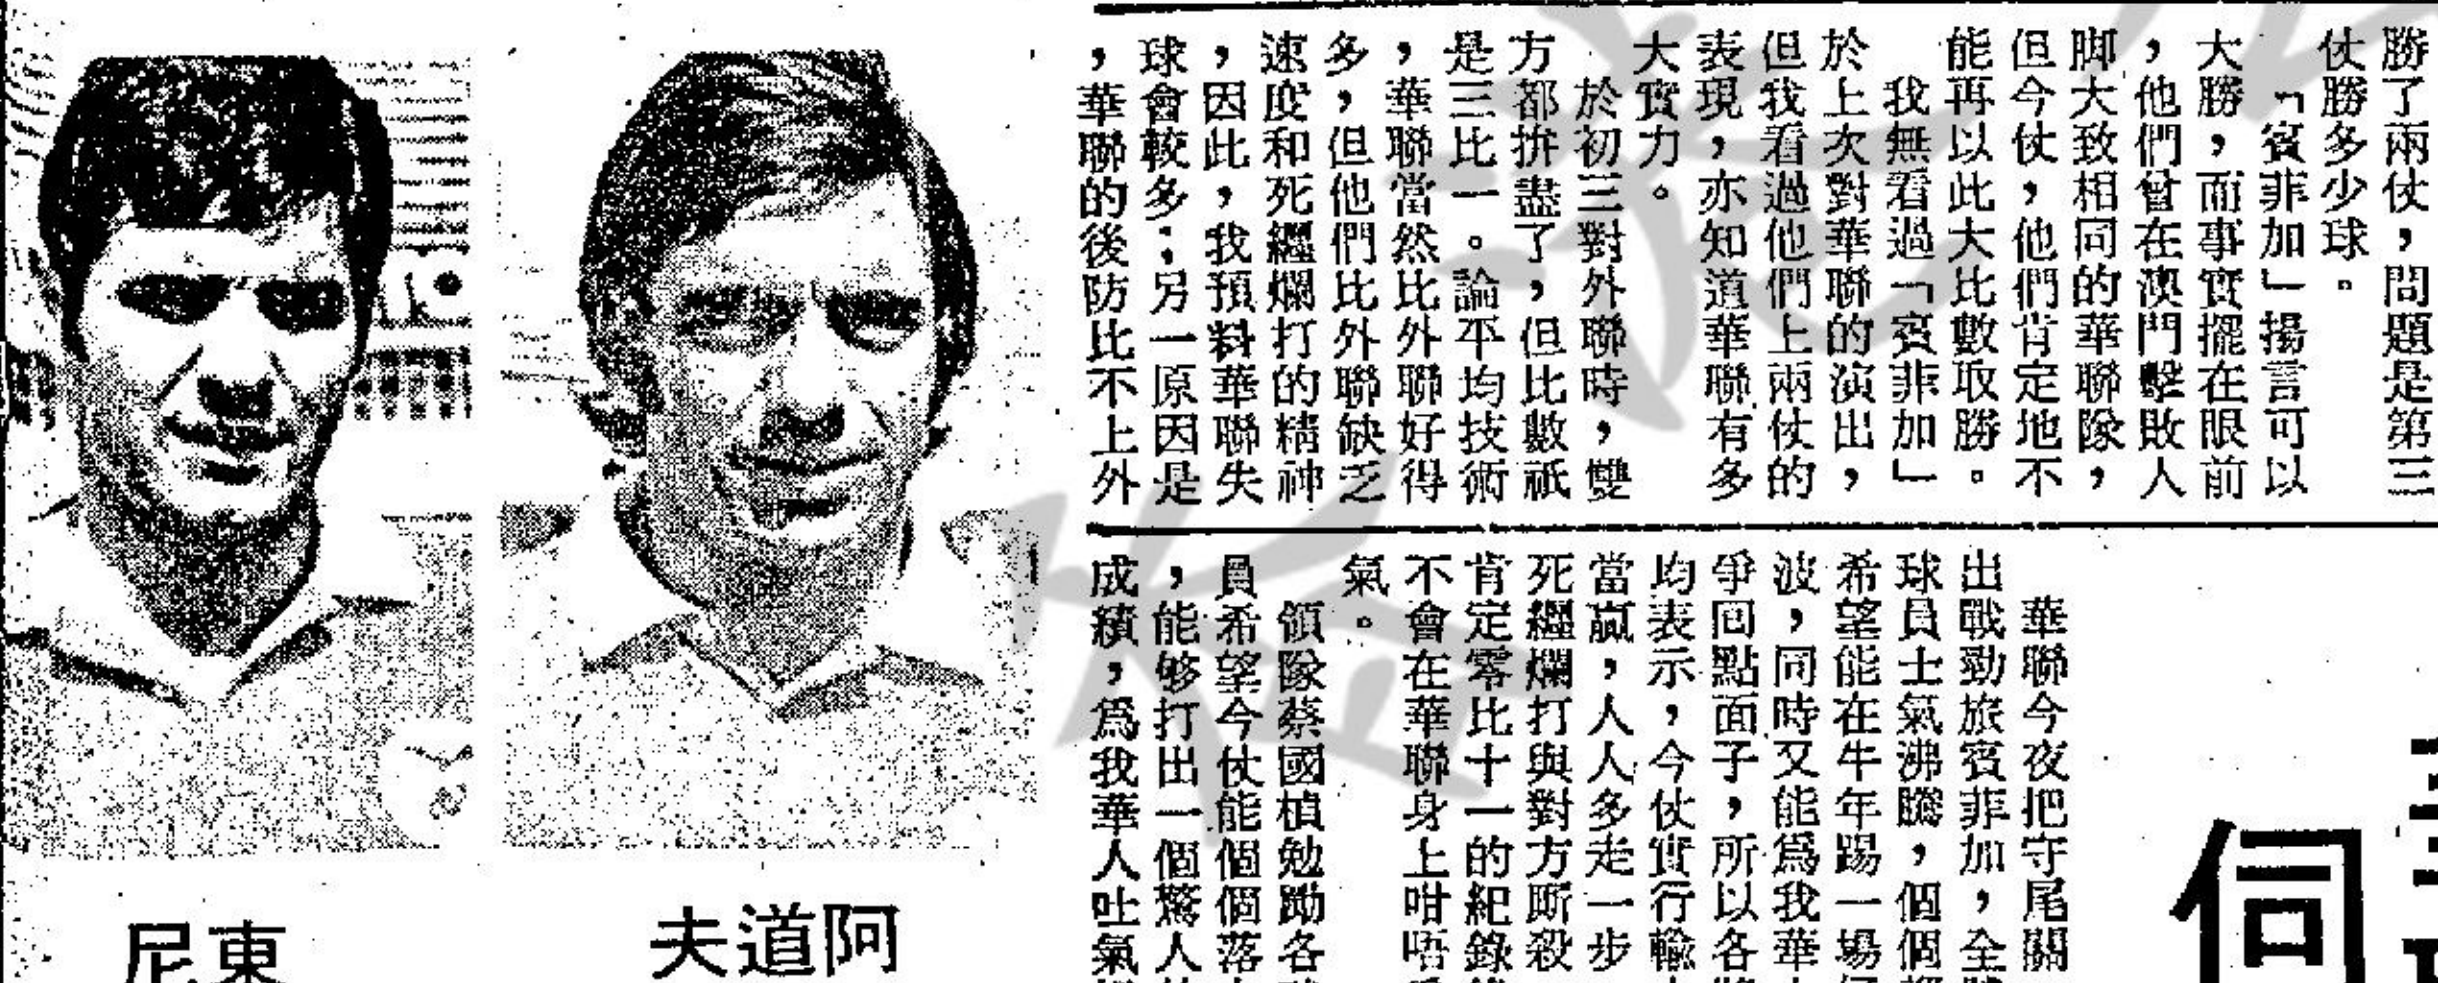 勝了兩仗，問題是第三
仗勝多少球。
「賓菲加」揚言可以
大勝，而事實擺在眼前
，他們曾在澳門擊敗人
脚大致相同的華聯隊，
但今仗，他們肯定地不
能再以此大比數取勝。
我無看過「賓菲加」
於上次對華聯的演出，
但我看過他們上兩仗的
表現，亦知道華聯有多
大實力。
於初三對外聯時，雙
方都拚盡了，但比數祇
是三比一。論平均技術
，華聯當然比外聯好得
多，但他們比外聯缺乏
速度和死纒爛打的精神
，因此，我預料華聯失
球會較多；另一原因是
，華聯的後防比不上外
華聯今夜把守尾關
出戰勁旅賓菲加，全
球員士氣沸騰，個個
希望能在牛年踢一場
波，同時又能爲我華
爭回點面子，所以各
均表示，今仗實行輸
當贏，人人多走一步
死纒爛打與對方厮殺
肯定零比十一的紀錄
不會在華聯身上咁唔
氣。
領隊蔡國楨勉勵各
員希望今仗能個個落
，能够打出一個驚人
成績，爲我華人吐氣
伺
阿道夫
東尼